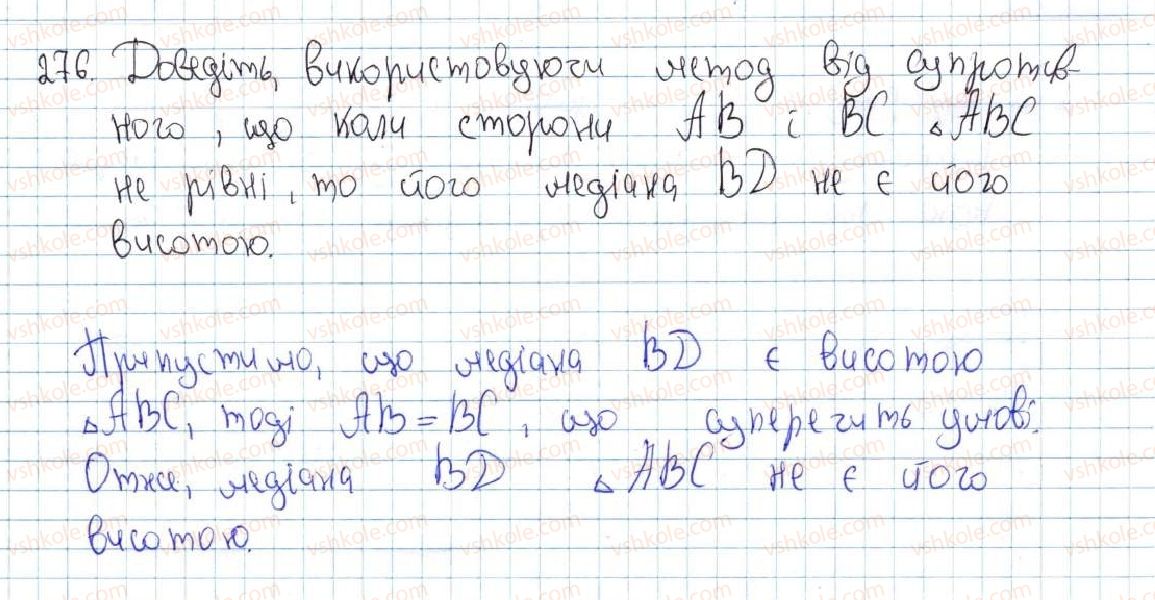 276. Доведіть, використовуючи метод від супротив-
ного, що коли сторони AB і BC △ABC
не рівні, то його медіана BD не є його
висотою.
Припустимо, що медіана BD є висотою
△ABC, тоді AB = BC, що суперечить умові.
Отже, медіана BD △ABC не є його
висотою.